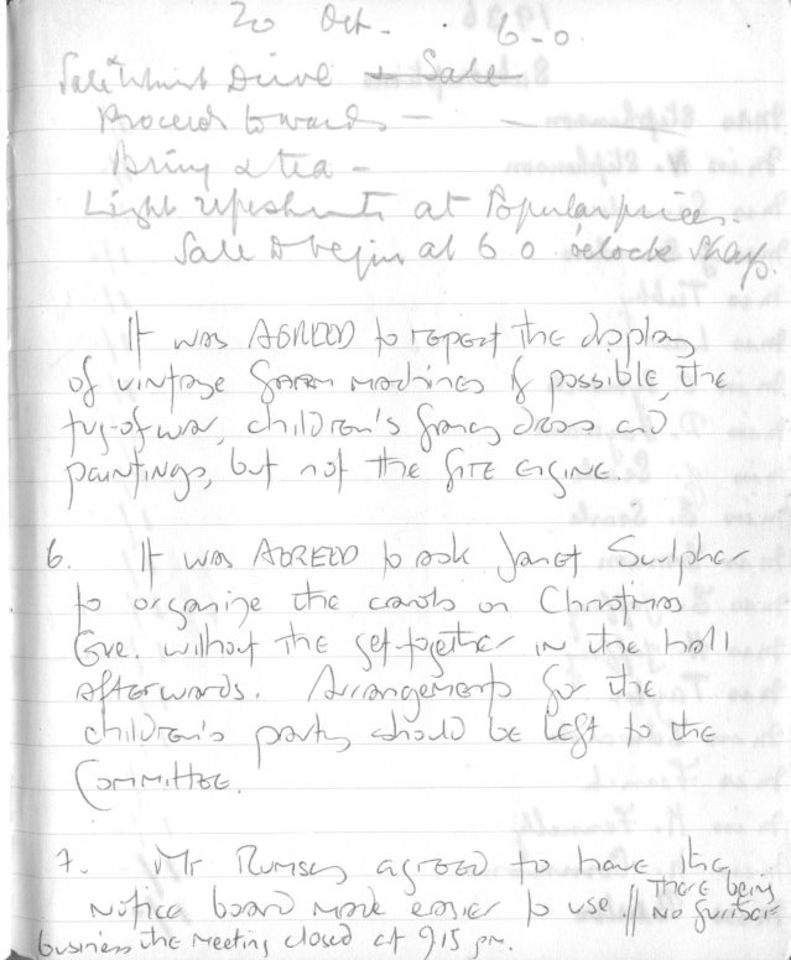 20 Oct. 6-0
Sale & Whist Drive + Sale
Proceeds towards -
Bring & tea -
Light refreshments at Popular prices.
Sale to begin at 6 0 o'clock sharp.
It was AGREED to repeat the display
of vintage farm machines if possible, the
tug-of-war, children's fancy dress and
paintings, but not the fire engine.
6. It was AGREED to ask Janet Sculpher
to organize the carols on Christmas
Eve. without the get-together in the hall
afterwards. Arrangements for the
children's party should be left to the
Committee.
7. Mr Rumsey agreed to have the
notice board made easier to use // There being
no further
business the meeting closed at 9.15 pm.